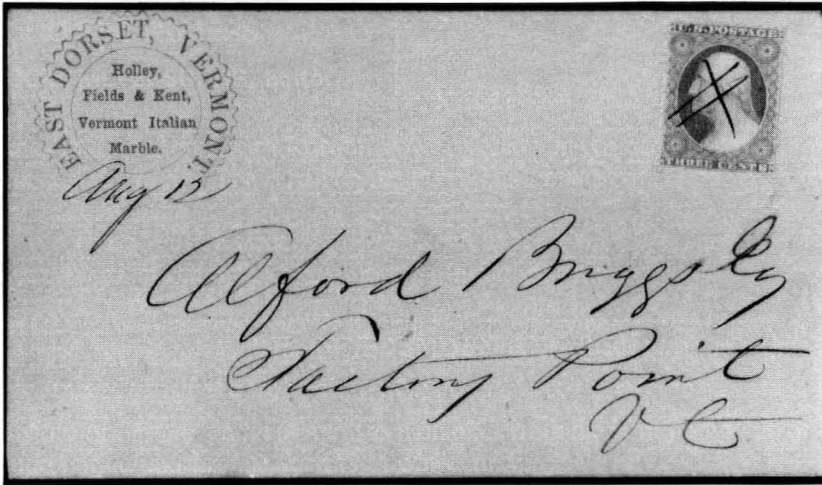 EAST DORSET, VERMONT.
Holley,
Fields & Kent,
Vermont Italian
Marble.
Aug 12
U.S. POSTAGE
THREE CENTS
Alford Briggs Esq
Factory Point
Vt